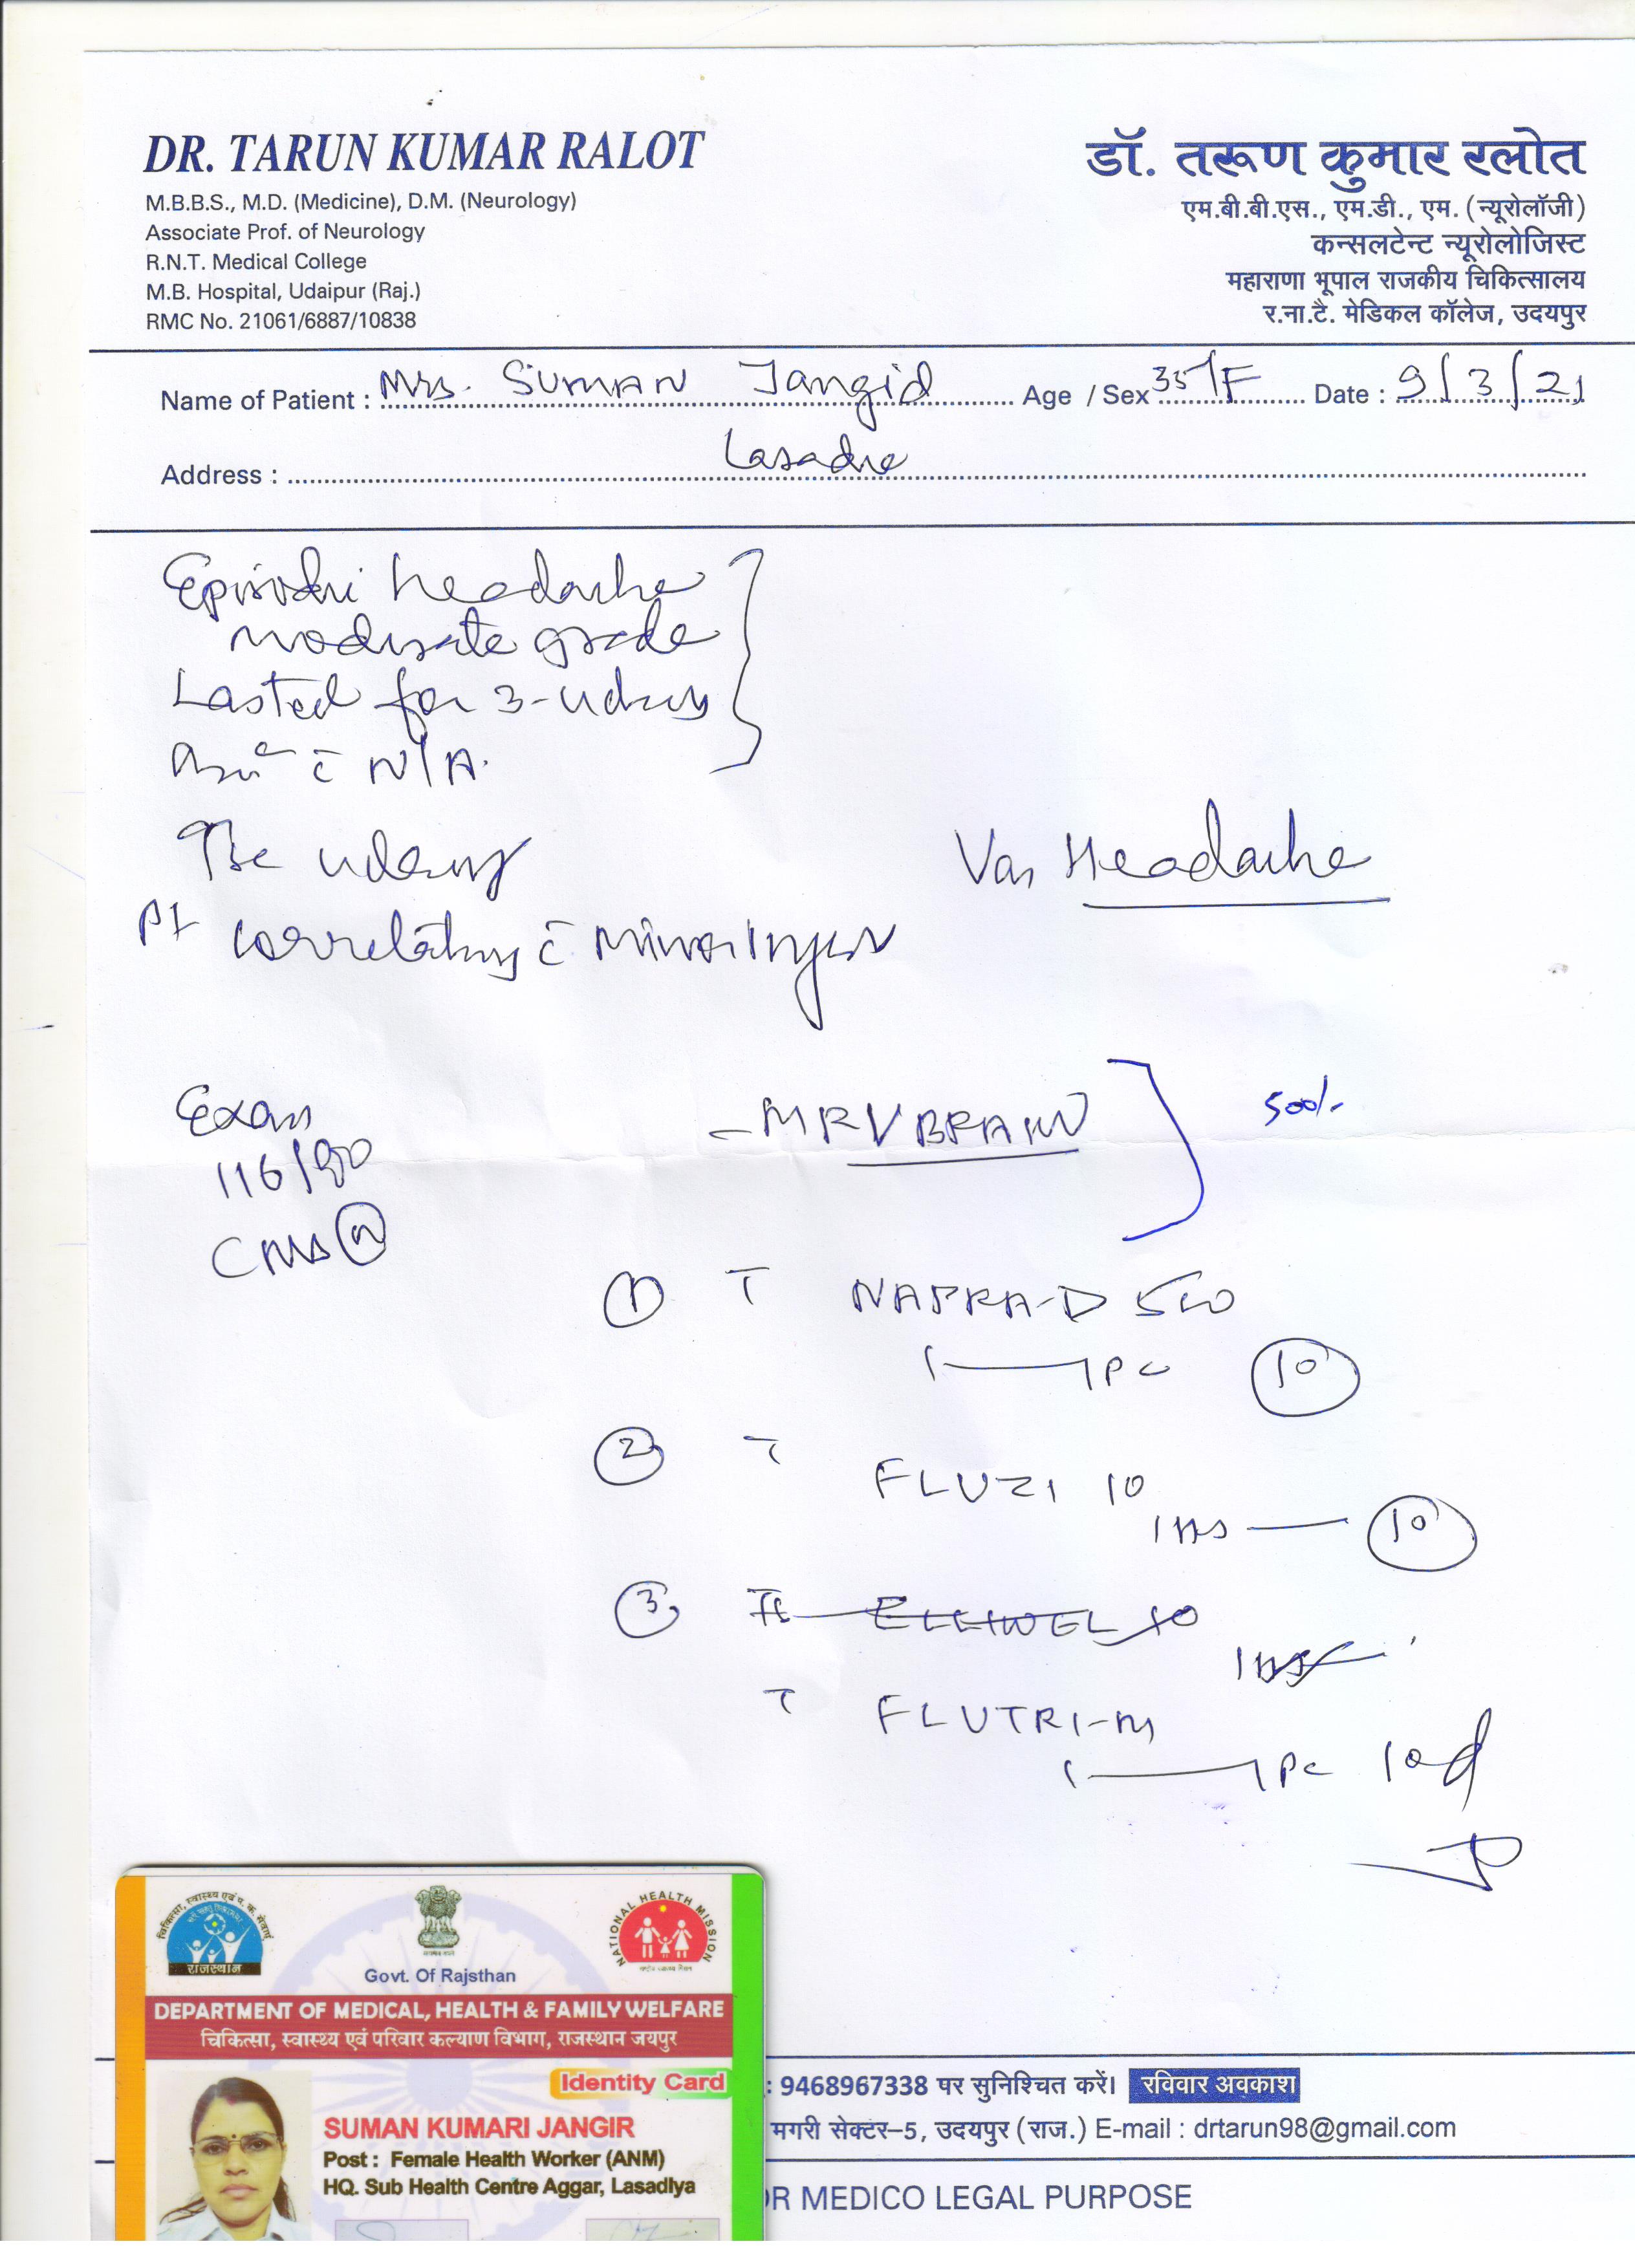 DR. TARUN KUMAR RALOT
M.B.B.S., M.D. (Medicine), D.M. (Neurology)
Associate Prof. of Neurology
R.N.T. Medical College
M.B. Hospital, Udaipur (Raj.)
RMC No. 21061/6887/10838
डॉ. तरूण कुमार रलोत
एम.बी.बी.एस., एम.डी., एम. (न्यूरोलॉजी)
कन्सलटेन्ट न्यूरोलोजिस्ट
महाराणा भूपाल राजकीय चिकित्सालय
र.ना.टै. मेडिकल कॉलेज, उदयपुर
Name of Patient : Mrs. SUMAN Jangid Age / Sex 35/F Date : 9/3/21
Address :
headache
moderate grade
Lasted for 3-4 days
c̄ N/A.
Headache
c̄ Minor
Exam
116/80
CNS N
- MRV BRAIN
500/-
1 T NAPRA-D 500
1 1 PC 10
2 T FLUZI 10
1 HS 10
3
T FLUTRI-M
1 1 PC 10d
चिकित्सा, स्वास्थ्य एवं प. क. सेवाएं
राजस्थान
Govt. Of Rajsthan
NATIONAL HEALTH MISSION
DEPARTMENT OF MEDICAL, HEALTH & FAMILY WELFARE
चिकित्सा, स्वास्थ्य एवं परिवार कल्याण विभाग, राजस्थान जयपुर
Identity Card
SUMAN KUMARI JANGIR
Post : Female Health Worker (ANM)
HQ. Sub Health Centre Aggar, Lasadiya
: 9468967338 पर सुनिश्चित करें। रविवार अवकाश
मगरी सेक्टर-5, उदयपुर (राज.) E-mail : drtarun98@gmail.com
R MEDICO LEGAL PURPOSE